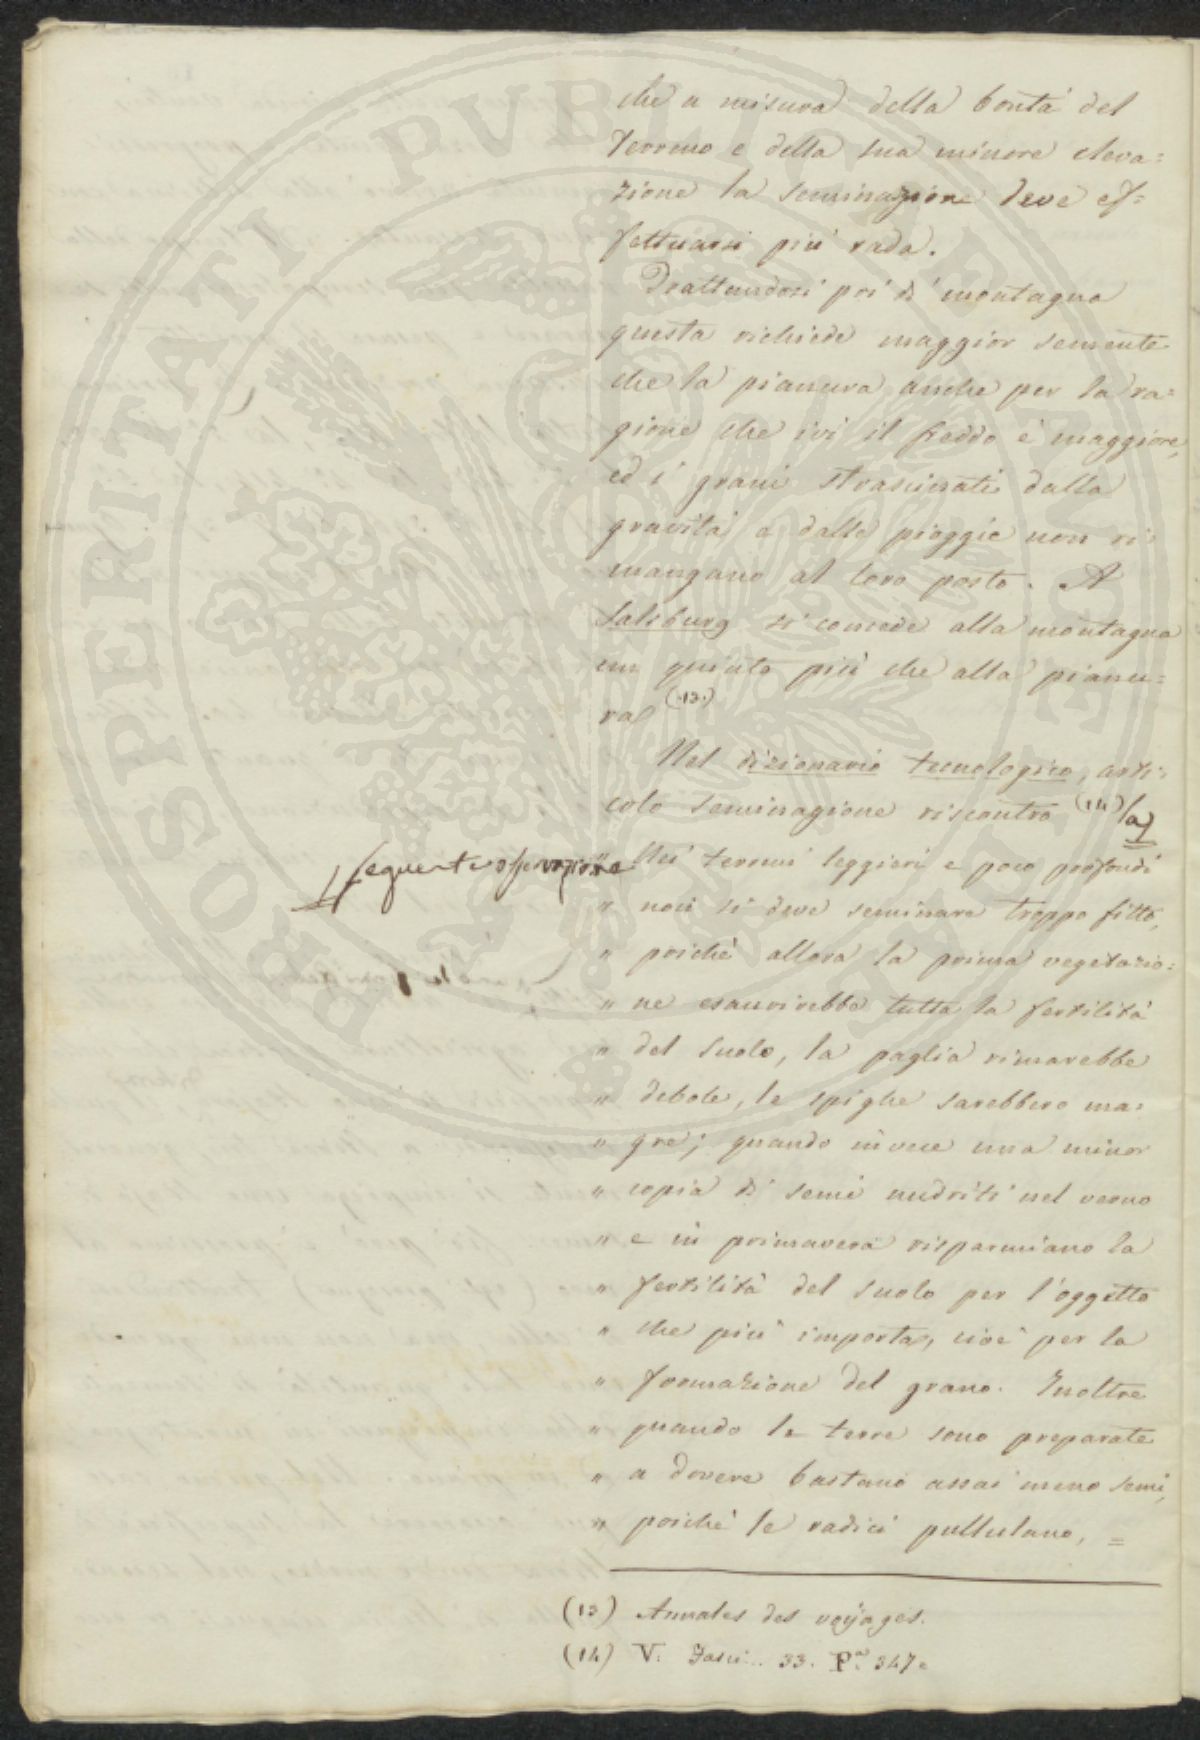 che a misura della bontà del
terreno e della sua minore eleva=
zione la seminagione deve ef=
fettuarsi più rada.
Trattandosi poi di montagna
questa richiede maggior semente
che la pianura anche per la ra=
gione che ivi il freddo è maggiore,
ed i grani strascinati dalla
gravità e dalle pioggie non ri=
mangano al loro posto. A
Salsburg si concede alla montagna
un quinto più che alla pianu=
ra (13.)
Nel dizionario tecnologico, arti=
colo seminagione riscontro (14) la
seguente osservazione
„ Nei terreni leggieri e poco profondi
„ non si deve seminare troppo fitto,
„ poichè allora la prima vegetazio=
„ ne esaurirebbe tutta la fertilità
„ del suolo, la paglia rimarebbe
„ debole, le spighe sarebbero ma=
„ gre; quando invece una minor
„ copia di semi nudriti nel verno
„ e in primavera risparmiano la
„ fertilità del suolo per l'oggetto
„ che più importa, cioè per la
„ formazione del grano. Inoltre
„ quando le terre sono preparate
„ a dovere bastano assai meno semi,
„ poichè le radici pullulano, =
(13) Annales des voyages.
(14) V. Fasci.. 33. P.a 347.
PROSPERITATI PVBLICAE